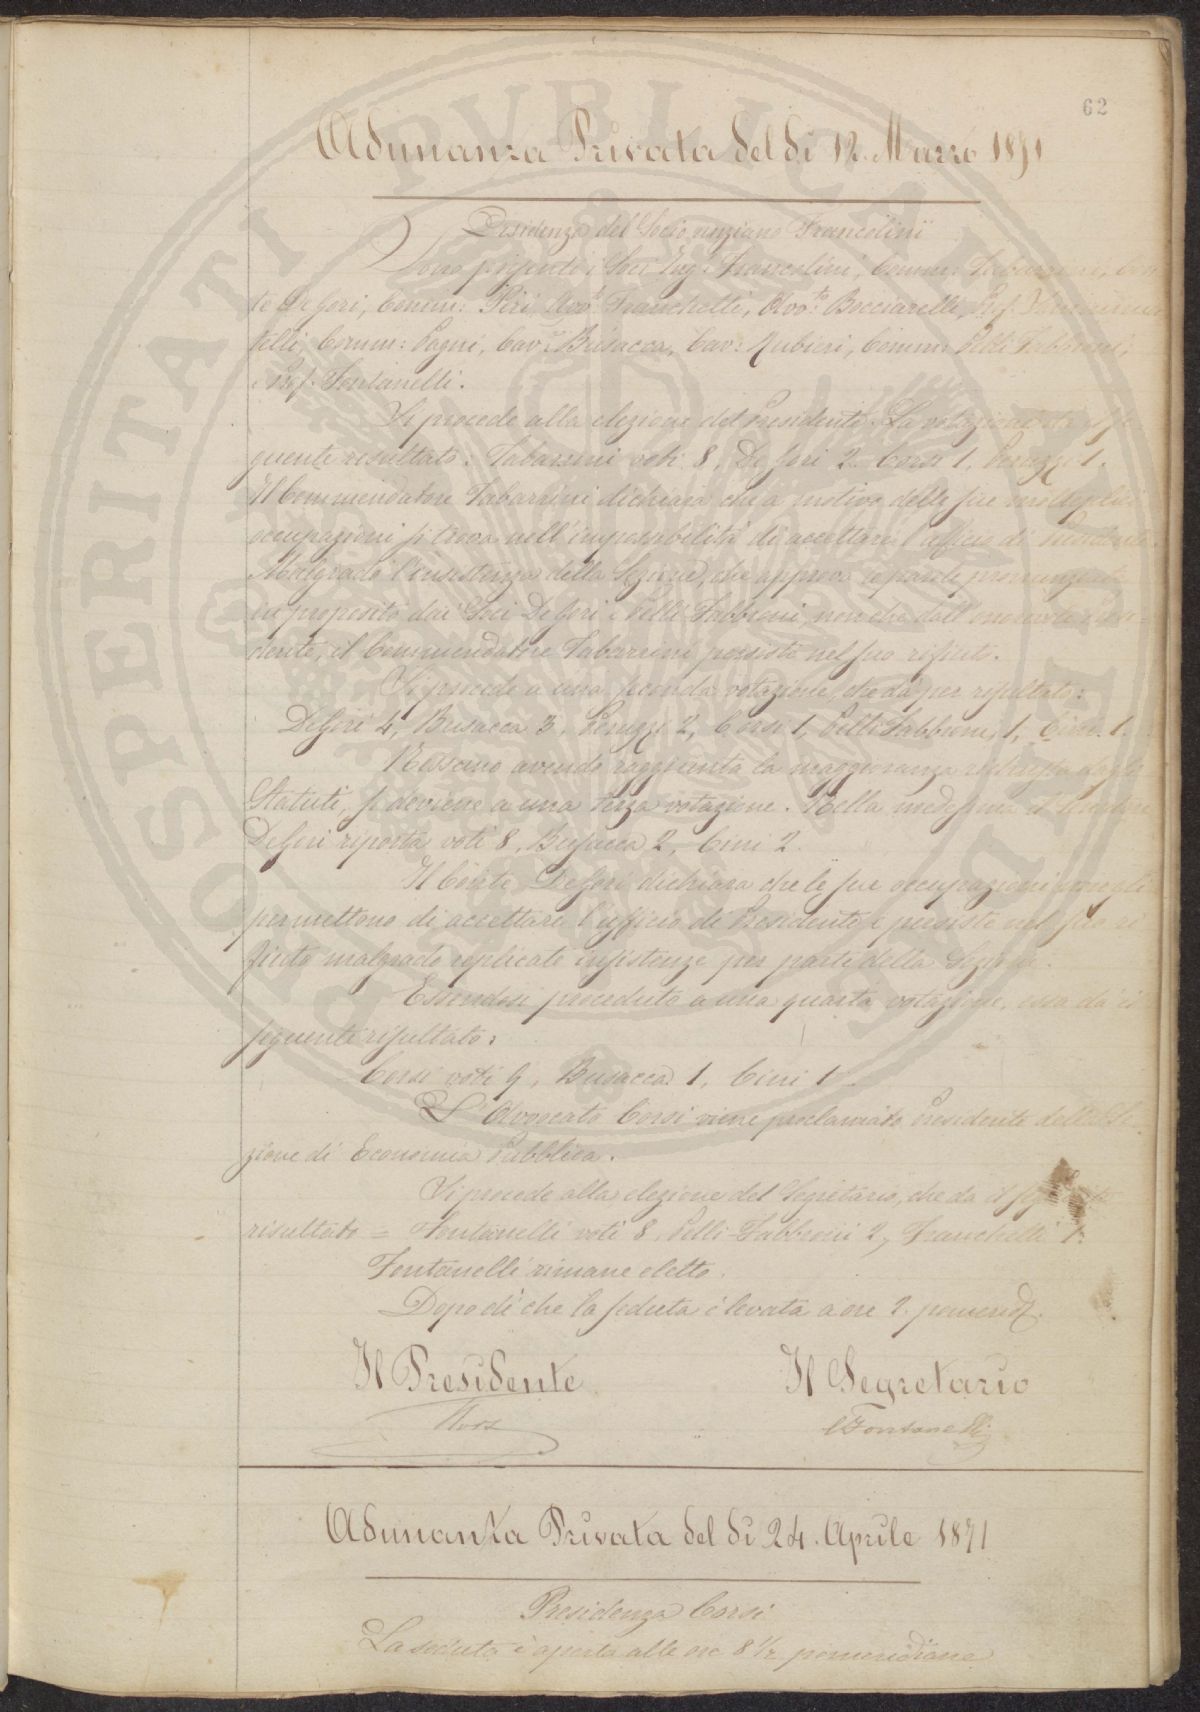 62
Adunanza Privata del dì 12. Marzo 1871
Presidenza del Socio anziano Francolini
Sono presenti i Soci Ing.e Francolini, Comm: Tabarrini, Con-
te De Gori, Comm: Piri, Avv.to Franchetti, Avv.to Bocciarelli, Prof.
telli, Comm: Pagni, Cav.re Busacca, Cav: Rubieri, Comm: Pelli Fabbroni,
e Prof. Fontanelli.
Si procede alla elezione del Presidente. La votazione dà il se-
guente resultato: Tabarrini voti 8, De Gori 2. Corsi 1, Peruzzi 1.
Il Commendatore Tabarrini dichiara che a motivo delle sue molteplici
occupazioni si trova nell'impossibilità di accettare l'ufficio di Presidente.
Malgrado l'insistenza della Sezione, che approva le parole pronunziate
in proposito dai Soci De Gori e Pelli Fabbroni, non che dall'onorevole Presi-
dente, il Commendatore Tabarrini persiste nel suo rifiuto.
Si procede a una seconda votazione, che dà per resultato:
De Gori 4, Busacca 3, Peruzzi 2, Corsi 1, Pelli Fabbroni, 1, Cini. 1.
Nessuno avendo raggiunta la maggioranza richiesta dagli
Statuti, si deviene a una terza votazione. Nella medesima il Senatore
De Gori riporta voti 8, Busacca 2, Cini 2.
Il Conte De Gori dichiara che le sue occupazioni non gli
permettono di accettare l'ufficio di Presidente e persiste nel suo ri
fiuto malgrado replicate insistenze per parte della Sezione.
Essendosi proceduto a una quarta votazione, essa dà il
seguente resultato:
Corsi voti 9, Busacca 1, Cini 1.
L'Avvocato Corsi viene proclamato Presidente della Se-
zione di Economia Pubblica.
Si procede alla elezione del Segretario, che dà il seguente
risultato = Fontanelli voti 8, Pelli-Fabbroni 2, Franchetti 1.
Fontanelli rimane eletto.
Dopo di che la seduta è levata a ore 2. pomerid.
Il Presidente Il Segretario
Corsi C Fontanelli
Adunanza Privata del dì 24. Aprile 1871
Presidenza Corsi
La seduta è aperta alle ore 8 1/2 pomeridiane
PROSPERITATI PVBLICAE AVGENDAE